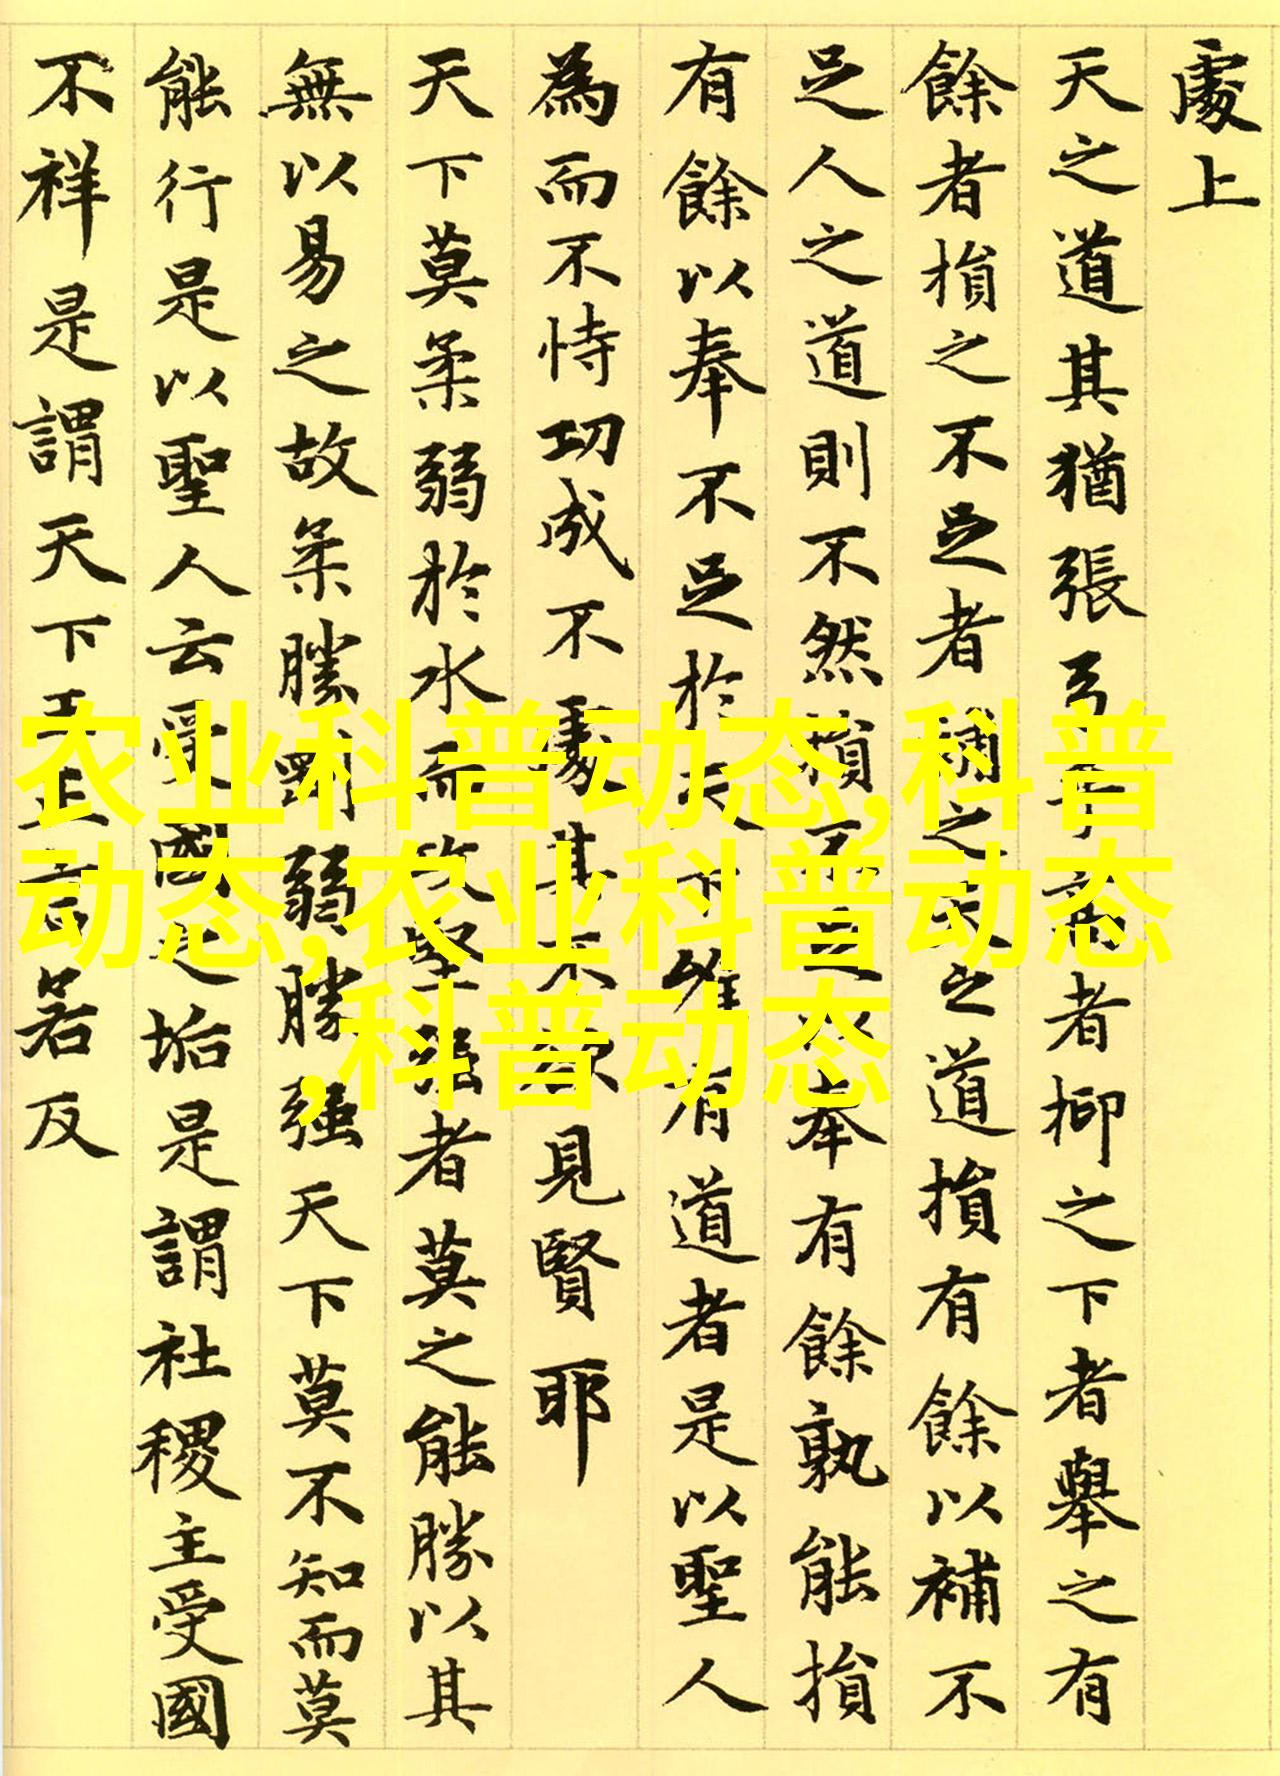 處上
天之道其猶張弓乎高者抑之下者舉之有
餘者損之不足者補之天之道損有餘以補不
足人之道則不然損不足以奉有餘孰能損
有餘以奉不足於天下唯有道者是以聖人
為而不恃功成不處其不欲見賢耶
天下莫柔弱於水而攻堅强者莫之能勝以其
無以易之故柔勝剛弱勝强天下莫不知而莫
能行是以聖人云受國之垢是謂社稷主受國
不祥是謂天下王正言若反
农业科普动态,科普
动态,农业科普动态
,科普动态